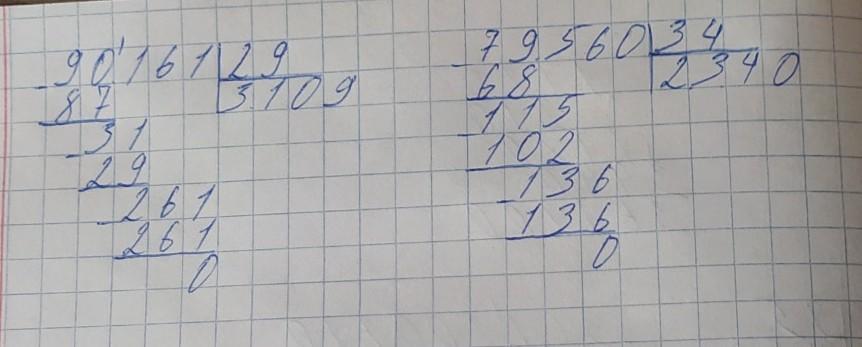 90'161 29
87 3109
31
29
261
261
0
79560 34
68 2340
115
102
136
136
0